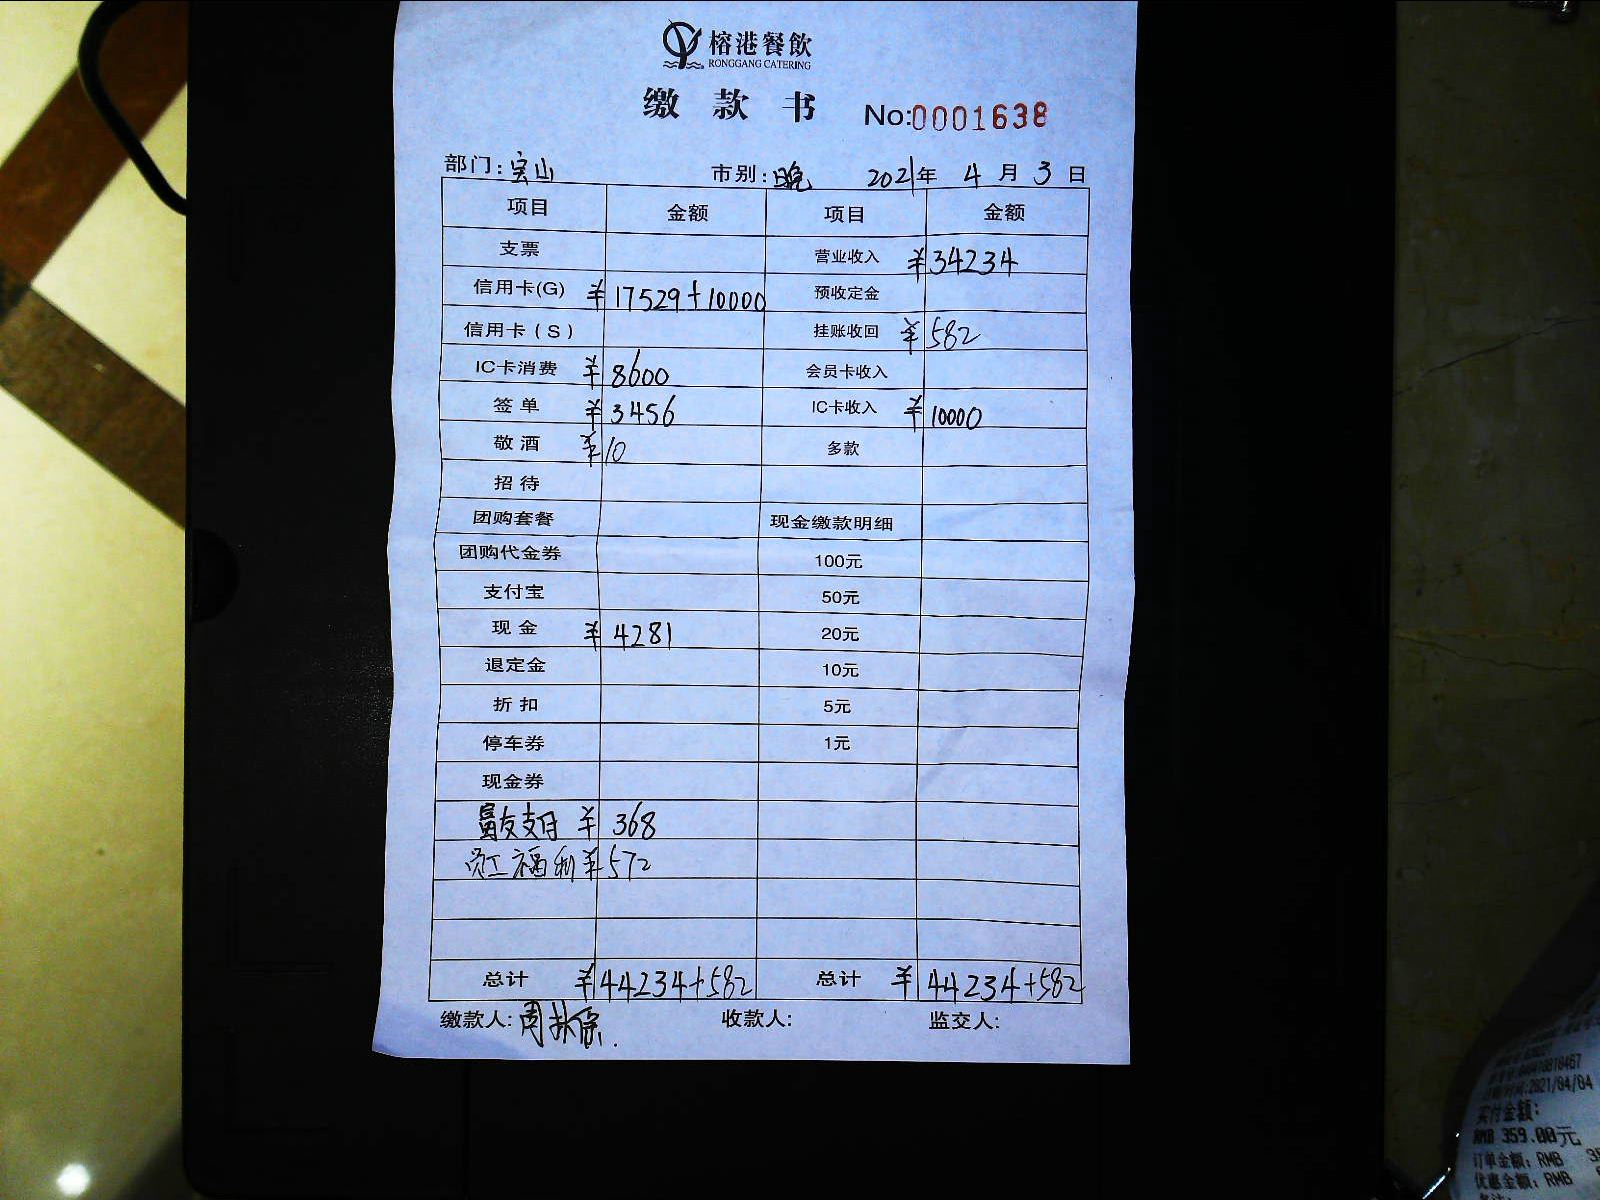 榕港餐飲
RONGGANG CATERING
缴款书 No:0001638
部门:宝山 市别:晚 2021年4月3日
项目 金额 项目 金额
支票 营业收入 ¥34234
信用卡(G) ¥17529+10000 预收定金
信用卡(S) 挂账收回 ¥582
IC卡消费 ¥8600 会员卡收入
签单 ¥3456 IC卡收入 ¥10000
敬酒 ¥10 多款
招待
团购套餐 现金缴款明细
团购代金券 100元
支付宝 50元
现金 ¥4281 20元
退定金 10元
折扣 5元
停车券 1元
现金券
支付 ¥368
员工福利 ¥572
总计 ¥44234+582 总计 ¥44234+582
缴款人:周 收款人: 监交人:
2021/04/04
实付金额:
RMB 359.00元
订单金额: RMB
优惠金额: RMB